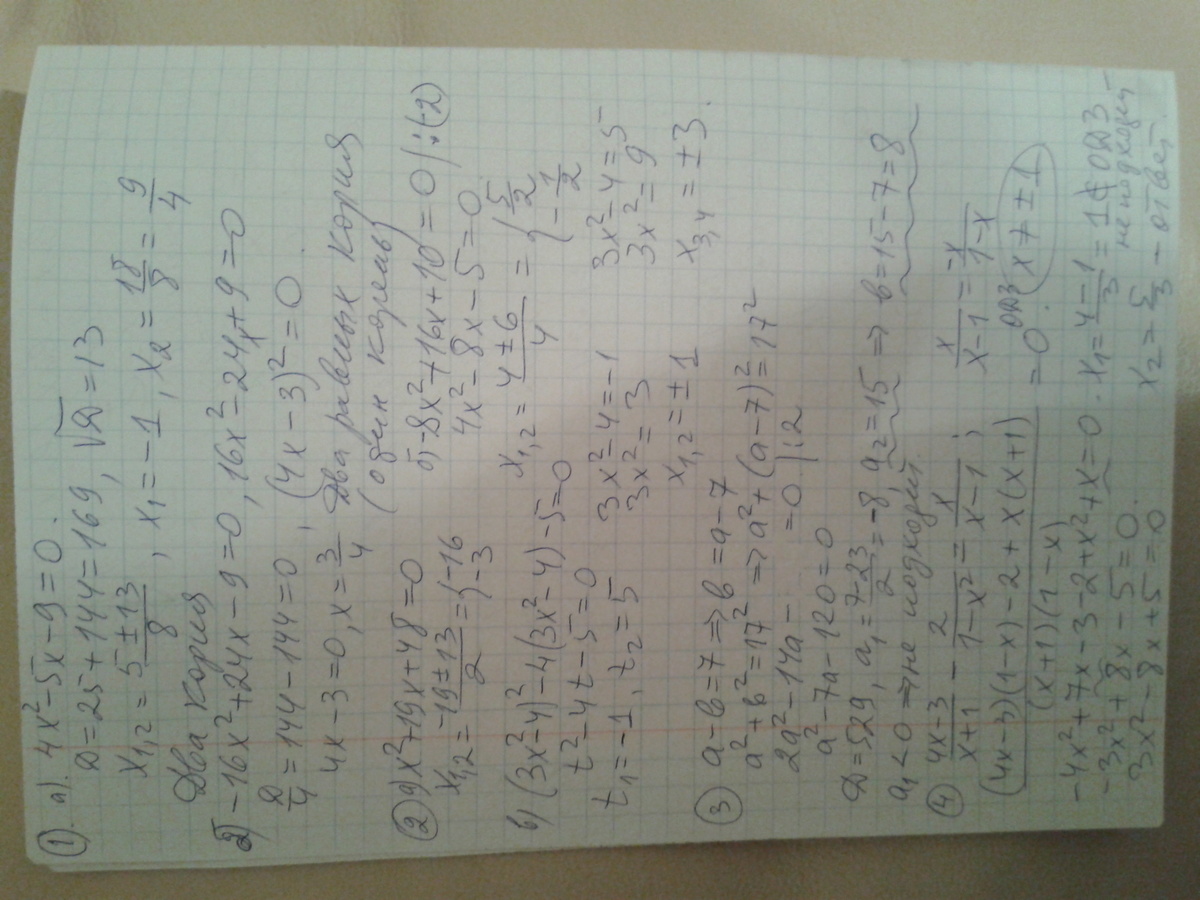 ① а). 4x² - 5x - 9 = 0.
D = 25 + 144 = 169, √D = 13
x₁,₂ = (5 ± 13)/8, x₁ = -1, x₂ = 18/8 = 9/4
Два корня
б) -16x² + 24x - 9 = 0, 16x² - 24x + 9 = 0
D/4 = 144 - 144 = 0, (4x - 3)² = 0.
4x - 3 = 0, x = 3/4 Два равных корня
(один корень)
② а) x² + 19x + 48 = 0 б) -8x² + 16x + 10 = 0 |:(-2)
x₁,₂ = (-19 ± 13)/2 = {-16 -3 4x² - 8x - 5 = 0
x₁,₂ = (4 ± 6)/4 = {5/2 -1/2
в) (3x² - 4)² - 4(3x² - 4) - 5 = 0
t² - 4t - 5 = 0 3x² - 4 = -1 3x² - 4 = 5
t₁ = -1, t₂ = 5 3x² = 3 3x² = 9
x₁,₂ = ±1 x₃,₄ = ±3.
③ a - b = 7 => b = a - 7
a² + b² = 17² => a² + (a - 7)² = 17²
2a² - 14a - = 0 |:2
a² - 7a - 120 = 0
D = 529, a₁ = (7 - 23)/2 = -8, a₂ = 15 => b = 15 - 7 = 8
a₁ < 0 => не подходит
④ (4x - 3)/(x + 1) - 2/(1 - x²) = x/(x - 1); x/(x - 1) = -x/(1 - x)
((4x - 3)(1 - x) - 2 + x(x + 1))/((x + 1)(1 - x)) = 0. ОДЗ x ≠ ±1
-4x² + 7x - 3 - 2 + x² + x = 0. x₁ = (4 - 1)/3 = 1 ∉ ОДЗ
-3x² + 8x - 5 = 0. не подходит
3x² - 8x + 5 = 0 x₂ = 5/3 - ответ.